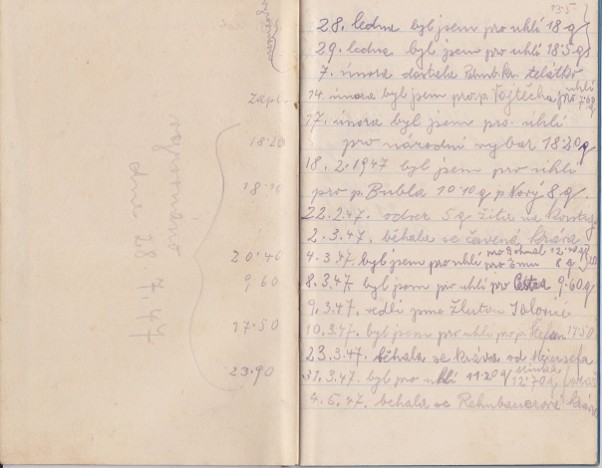 zapl.
18·20
18·10
20·40
9·60
17·50
23·90
dne 28. 7. 47
28. ledna byl jsem pro uhlí 18 q
29. ledna byl jsem pro uhlí 18·5 q
7. února dostala telátko
14. února byl jsem pro p. Vojtěcha pro uhlí
17. února byl jsem pro uhlí
pro národní vybor 18·20 q
18. 2. 1947 byl jsem pro uhlí
pro p. Bubla 10·10 q p Nový 8 q.
22. 2. 47. odvez 5 q žita na
2. 3. 47. běhala se červená kráva
4. 3. 47. byl jsem pro uhlí 12·40 q 8 q
8. 3. 47 byl jsem pro uhlí pro 9·60 q
9. 3. 47. vedli jsme žlutou
10. 3. 47. byl jsem pro uhlí pro p. Štefan 17·50
23. 3. 47. běhala se kráva od
31. 3. 47. byl pro uhlí 11·20 q 12·70 q
4. 6. 47. běhala se kráva